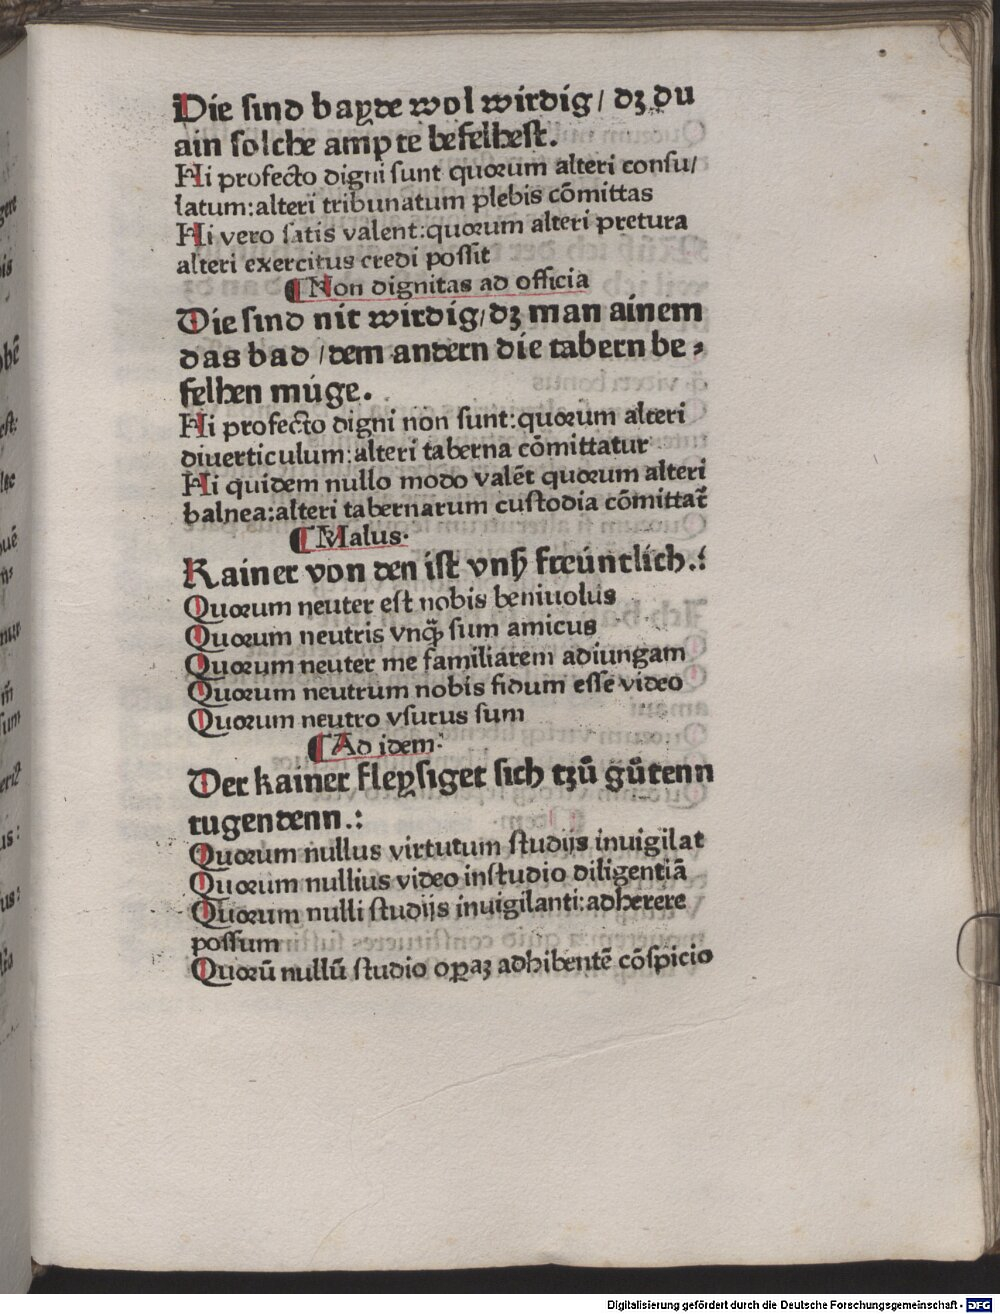 Die sind bayde wol wirdig / dz du
ain solche ampte befelhest.
Hi profecto digni sunt quorum alteri consu/
latum:alteri tribunatum plebis cõmittas
Hi vero satis valent:quorum alteri pretura
alteri exercitus credi possit
¶ Non dignitas ad officia
Die sind nit wirdig/dz man ainem
das bad /dem andern die tabern be⸗
felhen múge.
Hi profecto digni non sunt:quorum alteri
diuerticulum:alteri taberna cõmittatur
Hi quidem nullo modo valẽt quorum alteri
balnea:alteri tabernarum custodia cõmittat̃
¶ Malus·
Kainer von den ist vnß freúntlich.:
Quorum neuter est nobis beniuolus
Quorum neutris vnq̃ sum amicus
Quorum neuter me familiarem adiungam
Quorum neutrum nobis fidum esse video
Quorum neutro vsurus sum
¶ Ad idem·
Der kainer fleysiget sich tzů gůtenn
tugendenn.:
Quorum nullus virtutum studijs inuigilat
Quorum nullius video instudio diligentiã
Quorum nulli studijs inuigilanti:adherere
possum
Quorũ nullũ studio oꝑaz adhibentẽ cõspicio
Digitalisierung gefördert durch die Deutsche Forschungsgemeinschaft - DFG